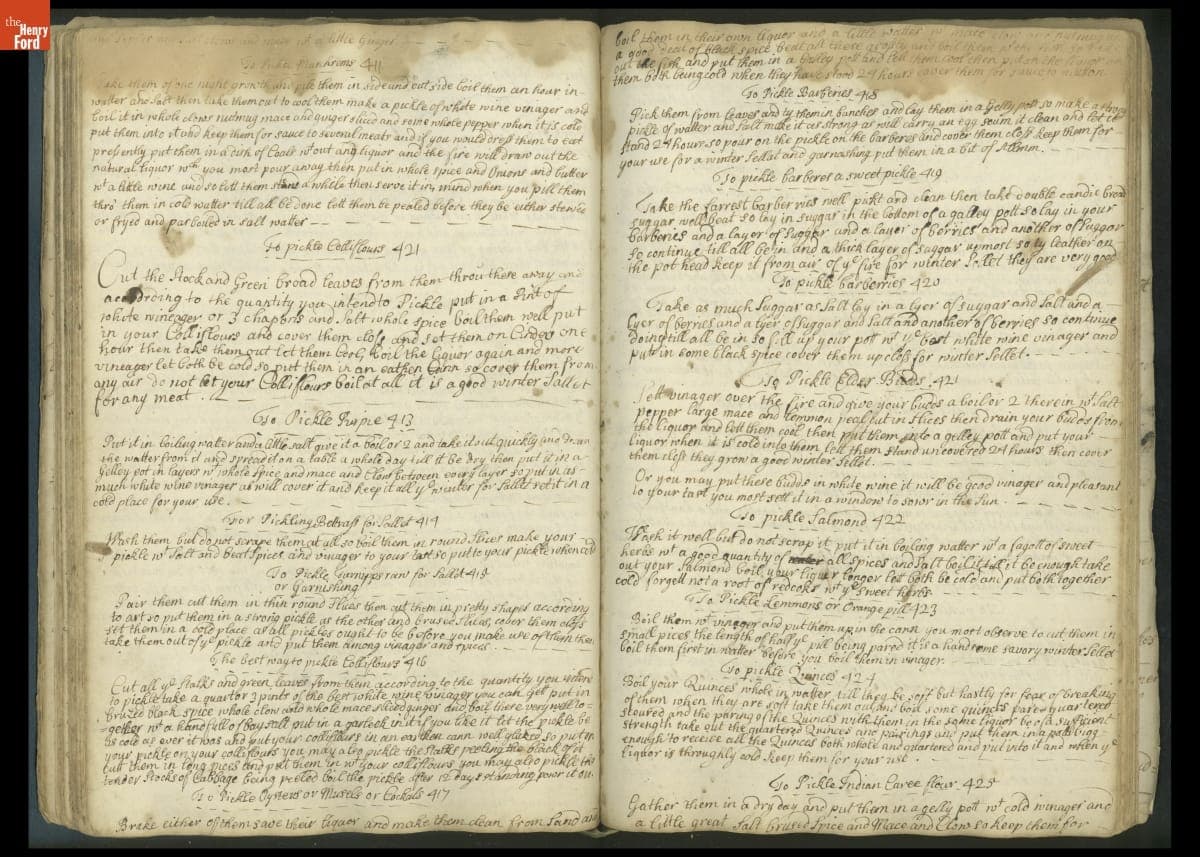 the
Henry
Ford
and make a little Ginger
To Pickle Mushroms 411
Take them of one night growth and pile them in side and out side boil them an hour in
watter and salt then take them out to cool then make a pickle of white wine vinager and
boil it in whole clows nutmug mace and ginger sliced and some whole pepper when it is cold
put them into it who keep them for sauce to severel meats and if you would dress them to eat
presently put them in a dish of Coals wtout any liquor and the fire will draw out the
natural liquor wch you most pour away then put in whole spice and Onions and butter
wt a little wine and so lett them stand a while then serve it in, mind when you pill them
thro them in cold watter till all be done lett them be pealed before they be either stewed
or fryed and parboiled in salt watter
To pickle Colliflours 421
Cut the Stock and Green broad leaves from them throu there away and
according to the quantity you intend to Pickle put in a Pint of
white vineager or 3 chapens and Salt whole spice boil them well put
in your Colliflours and cover them closs and set them on Cinders one
hour then take them out let them Cool, boil the liquor again and more
vineager let both be cold so put them in an eathen Cann so cover them from
any air do not let your Colliflours boil at all it is a good winter Sallet
for any meat.
To Pickle Purpie 413
Put it in boiling water and a little salt give it a boil or 2 and take it out quickly and drean
the watter from it and spread it on a table a whole day till it be dry then put it in a
Gelley pot in layers wt whole spice and mace and Clow between every layer so put in as
much white wine vinager as will cover it and keep it all ye winter for Sallet set it in a
cold place for your use.
For Pickling Bettrass for Sallet 414
Wash them but do not scrape them at all so boil them in round slices make your
pickle wt Salt and beat spices and vinager to your tast so put to your pickle when cold
To Pickle Turnyps raw for Sallet 415
or Garnishing
Pair them cutt them in thin round slices then cutt them in pretty shapes according
to art so put them in a strong pickle as the other and brused slices, cober them closs
set them in a cold place as all pickles ought to be before you make use of them then
take them out of ye pickle and put them among vinagar and spices.
The best way to pickle Colliflours 416
Cutt all ye stalks and green leaves from them according to the quantity you intend
to pickle take a quart or 3 pints of the best white wine vinager you can get put in
bruzed black spice whole clow cold whole mace sliced ginger and boil there very well to=
=gether wt a handfull of bay salt put in a garleck in it if you like it let the pickle be
as cold as ever it was and put your colliflurs in an earthen cann well glazed so put in
your pickle on your colliflours you may also pickle the stalks peeling the black of it
cutt them in long pices and put them in wt your colliflours you may also pickle the
tender Stocks of Cabbage being peeled boil the pickle after 12 days standing pour it on
To Pickle Oysters or Musels or Cockels 417
Brake either off them save their liquor and make them clean from Sand and
boil them in their own liquor and a little watter wt mace clow and nutmug
a good deal of black spice beat all these grosly and boil them
out the fish and put them in a Galley pott and lett them cool then put on the liquor on
them both being cold when they have stood 24 hours cover them for sauce to mutton
To Pickle Barberies 418
Pick them from leaves and ty them in bunches and lay them in a Gelly pott so make a strong
pickle of watter and salt make it as strong as will carry an egg scum it clean and let it
stand 24 hours so pour on the pickle on the barberes and cover them closs keep them for
your use for a winter Sellat and garnashing put them in a bit of Allom.
To pickle barberes a sweet pickle 419
Take the farrest barberries well pickt and clean then take double candie broad
suggar well beat so lay in suggar in the bottom of a galley pott so lay in your
barberies and a layer of suggar and a layer of berries and another of suggar
so continue till all be in and a thick layer of suggar upmost so ty leather on
the pot head keep it from air of ye fire for winter Sellet they are very good
To pickle barberies 420
Take as much Suggar as Salt lay in a lyer of suggar and salt and a
lyer of berries and a lyer of suggar and Salt and another of berries so continue
doing till all be in so fill up your pott wt ye best white wine vinager and
put in some black spice cover them up closs for winter Sellet.
To Pickle Elder Budds 421
Sett vinager over the fire and give your buds a boil or 2 therein wt salt
pepper large mace and lemmon peal cut in slices then drain your buds from
the liquor and lett them cool then put them into a gelley pott and put your
liquor when it is cold into them, lett them stand uncovered 24 hours then cover
them closs they grow a good winter Sellet.
Or you may put these budds in white wine it will be good vinager and pleasant
to your tast you most sett it in a window to sowr in the sun.
To pickle Salmond 422
Wash it well but do not scrap it, put it in boiling watter wt a fagott of sweet
herbs wt a good quantity of all spices and salt boil it till it be enough take
out your Salmond boil your liquor longer lett both be cold and put both together
cold forgett not a root of redcoks wt ye sweet herbs
To Pickle Lemmons or Orange pill 423
Boil them wt vinager and put them up in the cann you most observe to cut them in
small pices the length of half ye pill being pared it is a handsome savory winter Sellet
boil them first in watter before you boil them in vinager.
To pickle Quinces 424
Boil your Quinces whole in watter till they be soft but hastly for fear of breaking
of them when they are soft take them out and boil some quinces pared quartered
and the paring of the Quinces with them in the same liquor to of a sufficent
strength take out the quartered Quinces and pairings and put them in a pott bigg
enough to receive all the Quinces both whole and quartered and put into it and when ye
liquor is throughly cold keep them for your use.
To Pickle Indian Caree flour 425
Gather them in a dry day and put them in a gelly pott wt cold winager and
a little great Salt brused Spice and Mace and Clow so keep them for